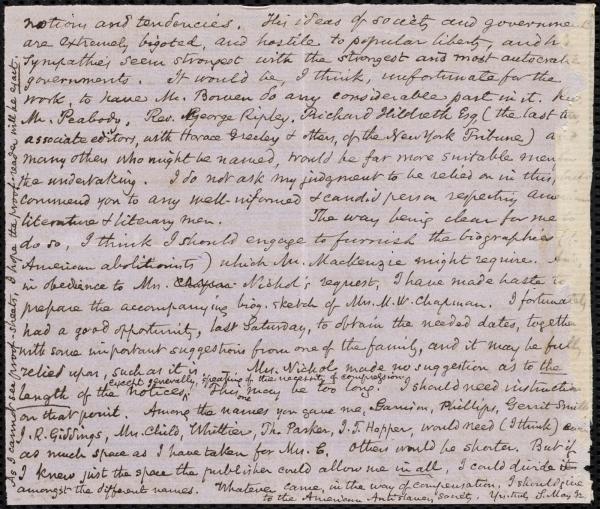 notions and tendencies. His ideas of society and government
are extremely bigoted, and hostile to popular liberty, and h
sympathies seem strongest with the strongest and most autocratic
governments. It would be, I think, unfortunate for the
work, to have Mr. Bowen do any considerable part in it. Rev
Mr. Peabody, Rev. George Ripley, Richard Hildreth Esq (the last two
associate editors, with Horace Greeley & others, of the New York Tribune) a
many others who might be named, would be far more suitable men for
the undertaking. I do not ask my judgment to be relied on in this,
commend you to any well-informed & candid person respecting Am
literature & literary men. The way being clear for me to
do so, I think I should engage to furnish the biographies (
American abolitionists) which Mr. Mackenzie might require. A
in obedience to Mrs. Nichol's request, I have made haste to
prepare the accompanying biog. sketch of Mrs. M. W. Chapman. I fortunately
had a good opportunity, last Saturday, to obtain the needed dates, together
with some important suggestions from one of the family, and it may be fully
relied upon, such as it is. Mrs. Nichols made no suggestion as to the
length of the notices, except generally, speaking of the necessity of compression. This one may be too long. I should need instruction
on that point. Among the names you gave me, Garrison, Phillips, Gerrit Smith
J. R. Giddings, Mrs. Child, Whittier, Th. Parker, I. T. Hopper, would need (I think)
as much space as I have taken for Mrs. C. Others would be shorter. But if
I knew just the space the publisher could allow me in all, I could divide it
amongst the different names. Whatever came, in the way of compensation, I should give
to the American Antislavery Society. Yrs. truly S. May Jr.
As I cannot see proof-sheets, I hope the proof-reader will be exact.